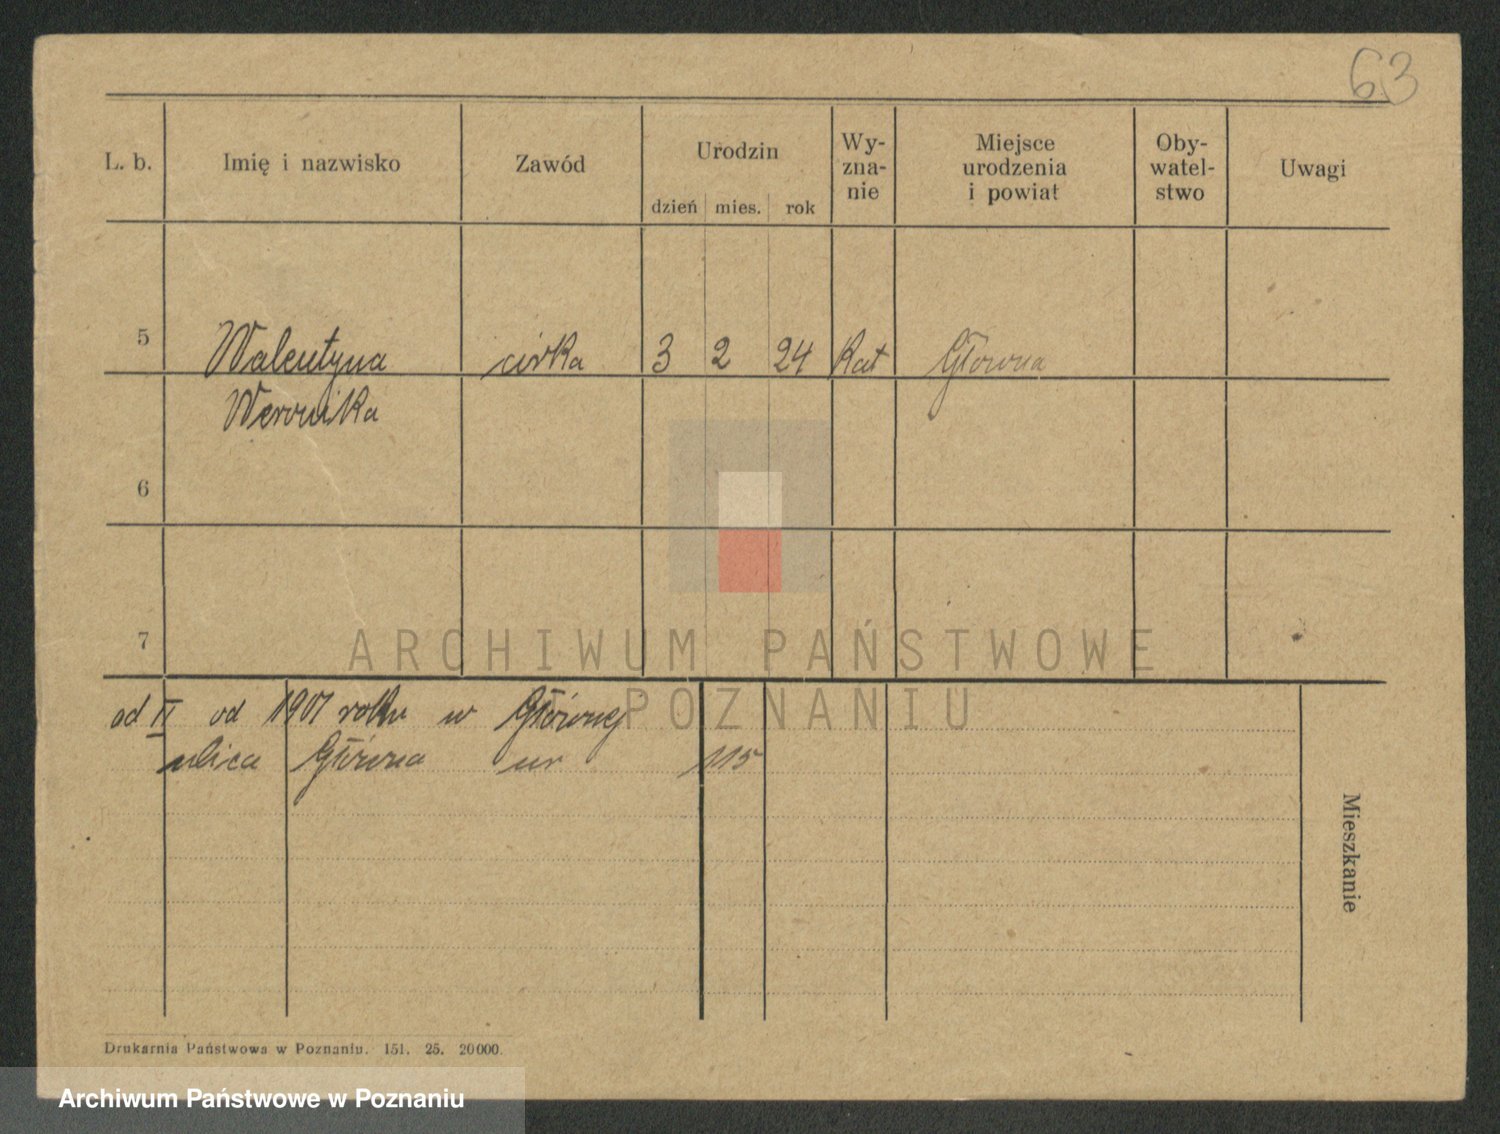 63
L. b. Imię i nazwisko Zawód Urodzin Wy-zna-nie Miejsce urodzenia i powiat Oby-watel-stwo Uwagi
dzień mies. rok
5 Walentyna córka 3 2 24 Kat Głowna
Weronika
6
7
ARCHIWUM PAŃSTWOWE
POZNANIU
od II od 1901 roku w Głównej
ulica Główna nr 115
Mieszkanie
Drukarnia Państwowa w Poznaniu. 151. 25. 20000.
Archiwum Państwowe w Poznaniu